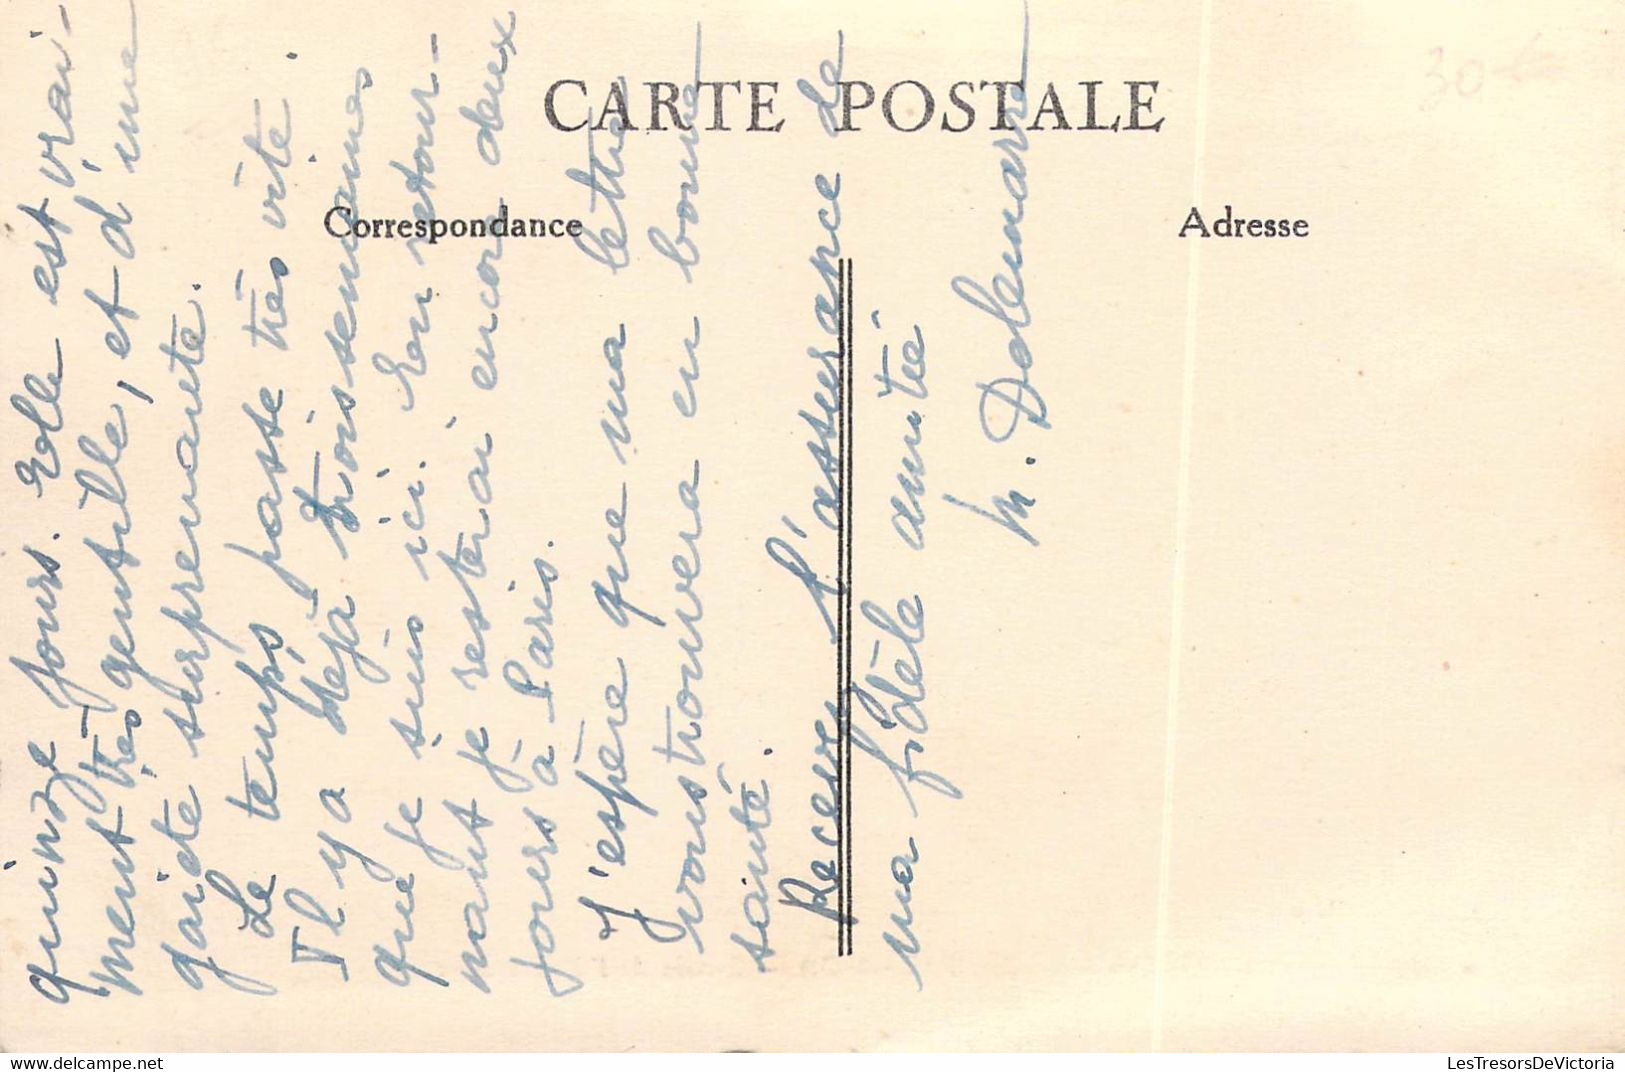 CARTE POSTALE
Correspondance
Adresse
30
quinze jours. Elle est vrai-
ment très gentille, et d'une
gaieté surprenante.
Le temps passe très vite.
Il y a déjà trois semaines
que je suis ici. En retour-
nant je resterai encore deux
jours à Paris.
J'espère que ma lettre
vous trouvera en bonne
santé.
Recevez l'assurance de
ma fidèle amitié
M. Dolemarre
LesTresorsDeVictoria